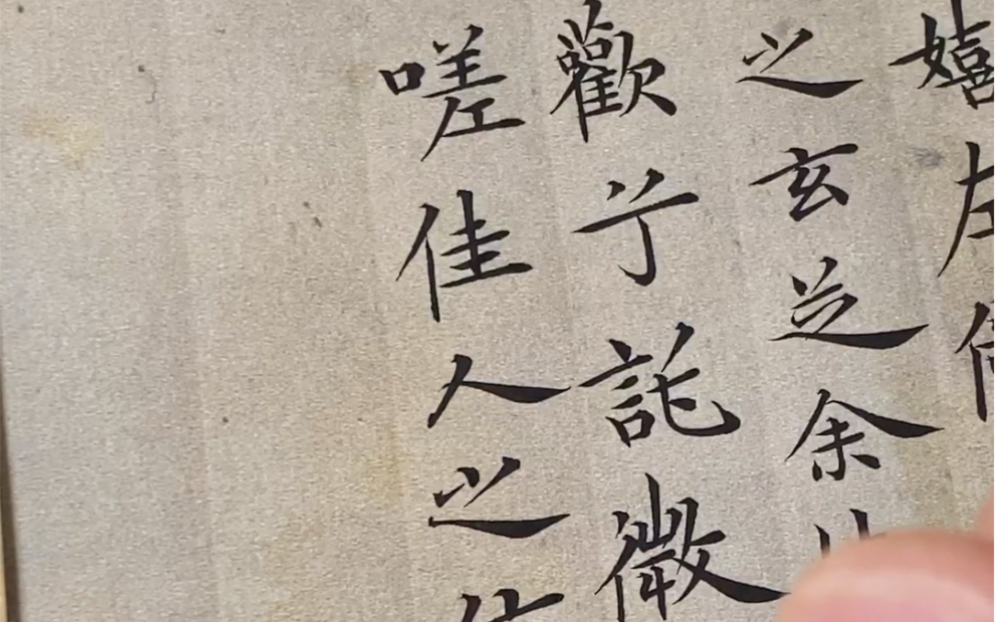 嬉左
之玄芝余
歡兮託微
嗟佳人之